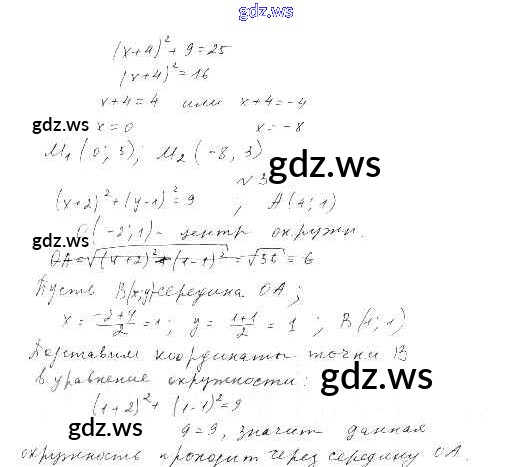 gdz.ws
(x+4)² + 9 = 25
(x+4)² = 16
x+4 = 4 или x+4 = -4
gdz.ws x = 0 x = -8
M₁ (0; 3); M₂ (-8, 3)
gdz.ws
№ 3
(x+2)² + (y-1)² = 9 , A(4; 1)
O(-2; 1) - центр окружн.
gdz.ws
OA = √((4+2)² + (1-1)²) = √36 = 6
Пусть B(x; y) середина OA;
x = (-2+4)/2 = 1; y = (1+1)/2 = 1 ; B(1; 1)
Подставим координаты точки B
в уравнение окружности:
gdz.ws
(1+2)² + (1-1)² = 9
gdz.ws 9 = 9, значит данная
окружность проходит через середину OA.